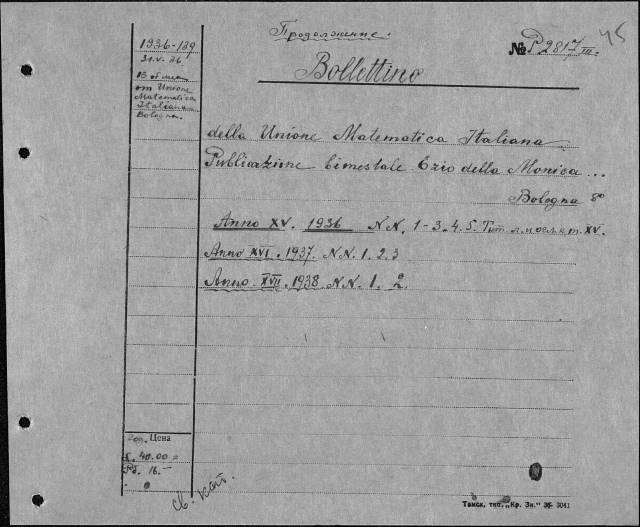 Продолжение.
45
№ P2817 III.
1936-129
31.V.36
В обмен
от Unione
Matematica
Italiana
Bologna.
Bollettino
della Unione Matematica Italiana.
Publicazione bimestale Ezio della Monica...
Bologna 8°
Anno XV. 1936 N.N. 1-3. 4. 5. Тит. л. и огл. к т. XV.
Anno XVI. 1937. N.N. 1. 2. 3
Anno XVII. 1938. N.N. 1. 2.
Цена
40.00 =
16.-
Св. кат.
Томск, тип. „Кр. Зн." 3041